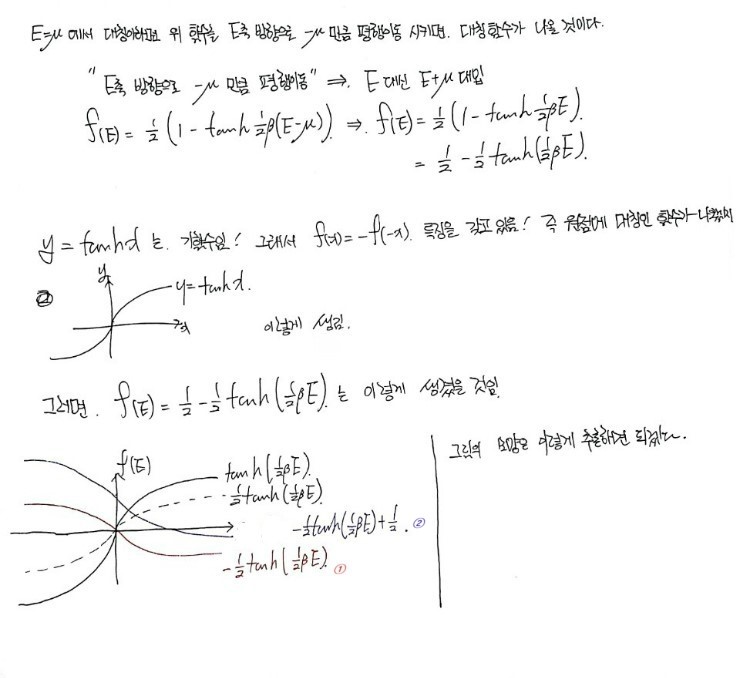 E=μ 에서 대칭이라면 위 함수를 E축 방향으로 -μ 만큼 평행이동 시키면. 대칭함수가 나올 것이다.
"E축 방향으로 -μ 만큼 평행이동" ⇒ E 대신 E+μ 대입
f(E) = 1/2 (1 - tanh 1/2 β(E-μ)) ⇒ f(E) = 1/2 (1 - tanh 1/2 βE).
= 1/2 - 1/2 tanh(1/2 βE).
y = tanh x 는. 기함수임! 그래서 f(x) = -f(-x). 특징을 갖고 있음! 즉 원점에 대칭인 함수가
y
y = tanh x.
x
이렇게 생김.
그러면. f(E) = 1/2 - 1/2 tanh(1/2 βE) 는 이렇게 생겼을 것임.
그림의 모양은 이렇게 추출하면 되겠다.
f(E)
tanh(1/2 βE).
1/2 tanh(1/2 βE)
-1/2 tanh(1/2 βE) + 1/2. ②
-1/2 tanh(1/2 βE) ①